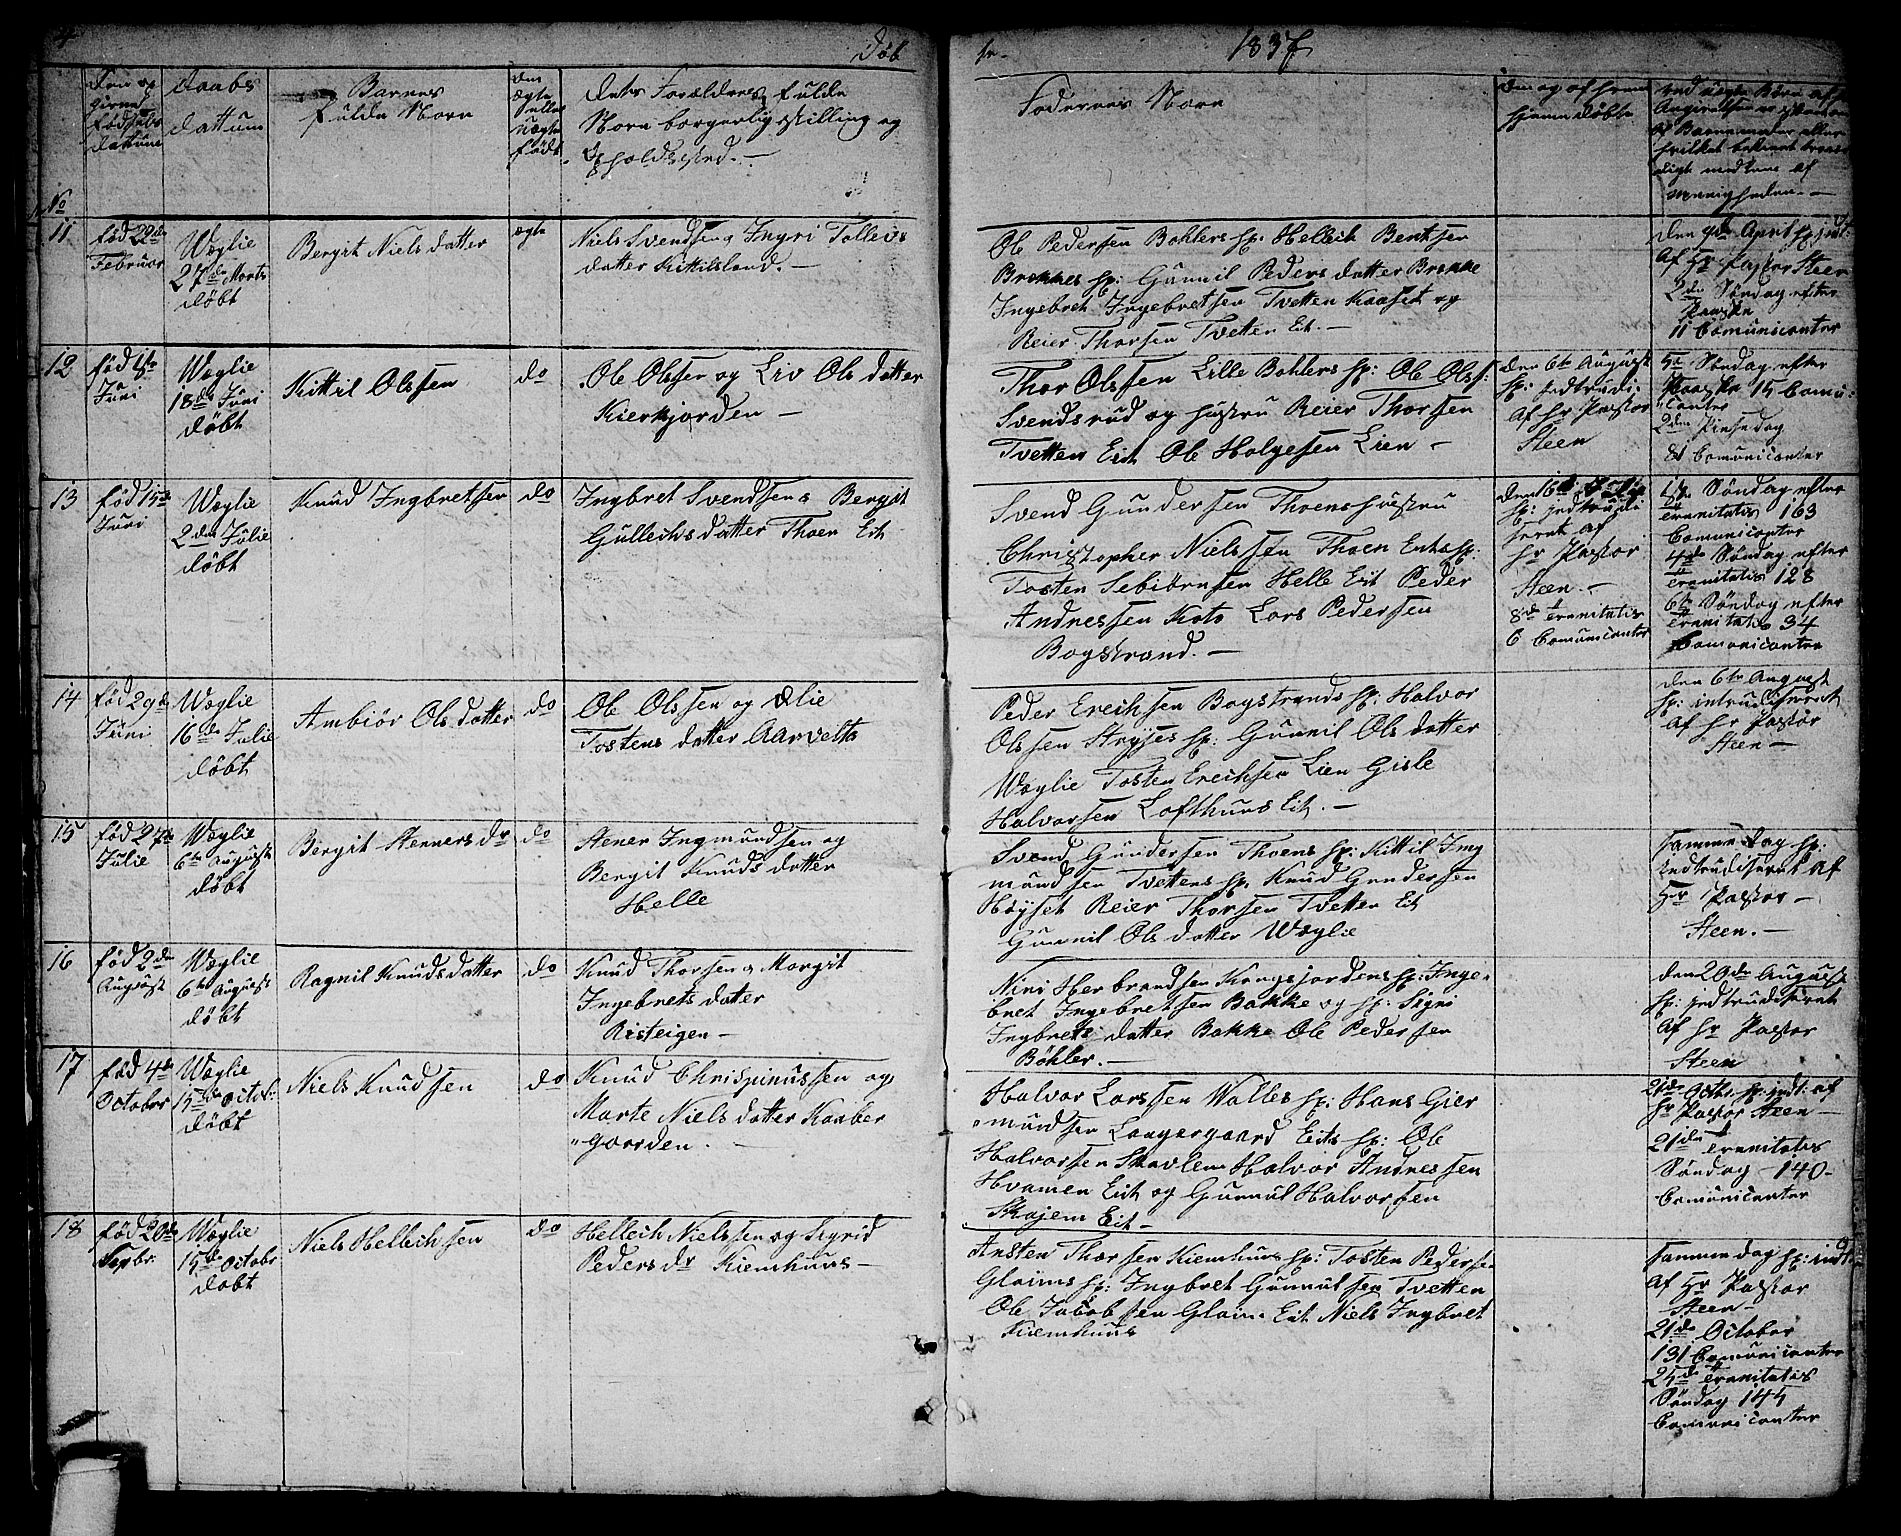 4
Døb
te
1837
No
Den og
giene
fødsels
dattum
Daabs
dattum
Barnes
fulde Navn
om
ægte
eller
uægte
født
dets Foreldres fulde
Navn borgerlig stilling og
opholdssted. —
Faderens Navn
hjemmedøbte
menigheden. —
11
fød 22de
Februar
Wæglie
27de Marts
døbt
Bergit Niels datter
ægte
Niels Svendsen & Ingri Tollevs
datter Kittilsland. —
Ole Pedersen Bøhlers sp: Hellech Bentsen
Brekkes sp: Gunnil Peders datter Brekke
Ingebret Ingebretsen Tvetten Kaaset og
Reier Thorsen Tvetten Eit. —
den 9de April sp: indt:
Af Hr Pastor Steen
2den Søndag efter
Paaske
11 Comunicanter
12
fød 1ste
Juni
Wæglie
18de Juni
døbt
Kittil Olssen
do
Ole Olssen og Liv Ols datter
Kierkjorden —
Thor Olssen Lille Bøhlers sp: Ole Olss:
Svendsrud og hustru Reier Thorsen
Tvetten Eit Ole Helgesen Lien —
den 6te August
sp: indtrudi:
af Hr Pastor
Steen
5te Søndag efter
Paaske 15 Comu:
"canter
2den Pinsedag
81 Comunicanter
13
fød 15de
Juni
Wæglie
2den Julie
døbt
Knud Ingbretsen
do
Ingbret Svendsen & Bergit
Gullechs datter Thoen Eit
Svend Gundersen Thoens hustru
Christopher Nielssen Thoen Eits sp:
Tosten Sebiørnsen Helle Eit Peder
Andressen Kats Lars Pedersen
Bogstrand. —
Den 16de Julie
sp: indtrudi
seret af
Hr Pastor
Steen. —
8de Trinitatis
6 Comunicanter
1ste Søndag efter
Trinitatis 163
Comunicanter
4de Søndag efter
Trinitatis 128
6te Søndag efter
Trinitatis 34
Comunicanter
14
fød 29de
Juni
Wæglie
16de Julie
døbt
Ambiør Ols datter
do
Ole Olssen og Olie
Tostens datter Aarvelta
Peder Erichsen Bogstrands sp: Halvor
Olssen Aryjes sp: Gunnil Ols datter
Wæglie Tosten Erichsen Lien Gisle
Halvorsen Lofthuus Eit. —
den 6te August
sp: intrudiseret
af Hr Pastor
Steen —
15
fød 27de
Julie
Wæglie
6te August
døbt
Bergit Stenners dr
do
Stener Ingmundsen og
Bergit Knuds datter
Helle
Svend Gundersen Thoens sp: Kittil Ing
mundsen Tvettens sp. Knud Gundersen
Høyset Reier Thorsen Tvetten Eit
Gunnil Ols datter Wæglie
Samme Dag sp:
Indtrudiseret af
Hr Pastor —
Steen. —
16
fød 2den
August
Wæglie
6te August
døbt
Ragnil Knudsdatter
do
Knud Thorsen & Margit
Ingebrets datter
Risteigen —
Nini Herbrandsen Kongsjordens sp: Inge-
bret Ingebretsen Bakke og sp: Signi
Ingbrets datter Bakke Ole Pedersen
Bøhler. —
den 20de August
sp: indtrudiseret
af Hr Pastor
Steen
17
fød 4de
October
Wæglie
15de Octob:
døbt
Niels Knudsen
do
Knud Chrispinussen og
Marte Niels datter Kaaber
"gaarden. —
Halvor Larssen Walles sp: Hans Gier
"mundsen Laagergaard Eits sp: Ole
Halvorsen Skavlem Halvor Andressen
Hvamen Eit og Gunnul Halvorsen
Skajem Eit —
21de Octb. sp: indt: af
Hr Pastor Steen —
21de Trinitatis
Søndag 140-
Comunicanter
18
fød 20de
Sepbr.
Wæglie
15de Octobr
døbt
Niels Hellechsen
do
Hellech Nielssen og Sigrid
Peders dr Kiemhuus —
Ansten Thorsen Kiemhuus sp: Tosten Peders:
Glaims sp: Ingbret Gunnulsen Tvetten
Ole Jacobsen Glaim Eit Niels Ingbret
Kiemhuus
Samme Dag sp: indt:
af Hr Pastor
Steen —
21de October
131 Comunicanter
25de Trinitatis
Søndag 145
Comunicanter